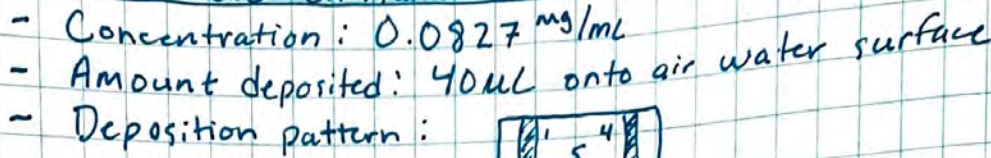 - Concentration: 0.0827 mg/mL
- Amount deposited: 40uL onto air water surface
- Deposition pattern:
1 4
5